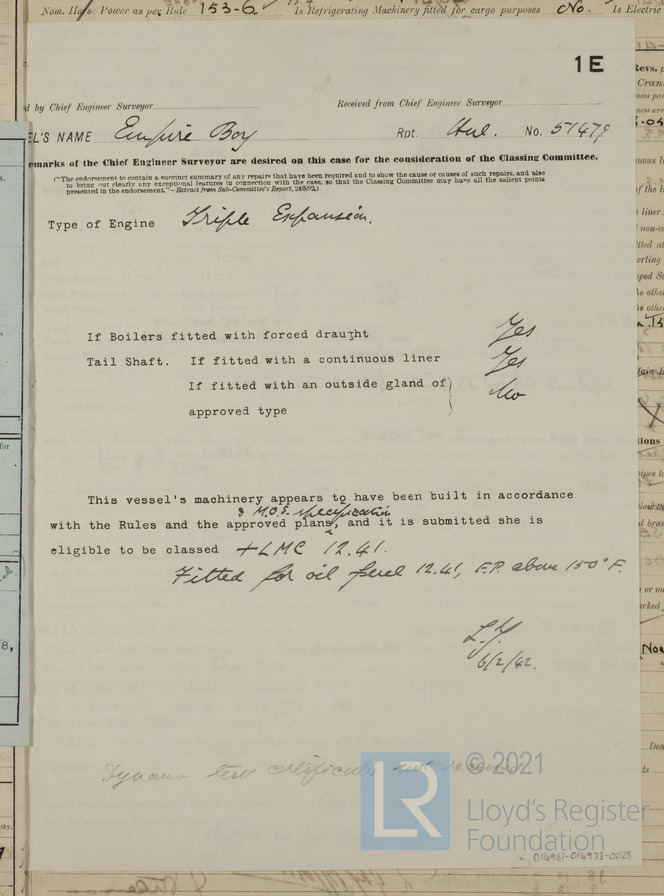 Nom. Horse Power as per Rule 153-6 Is Refrigerating Machinery fitted for cargo purposes No. Is Electric
1E
d by Chief Engineer Surveyor Received from Chief Engineer Surveyor
EL'S NAME Empire Boy Rpt. Hul. No. 51479
emarks of the Chief Engineer Surveyor are desired on this case for the consideration of the Classing Committee.
("The endorsement to contain a succinct summary of any repairs that have been required and to show the cause or causes of such repairs, and also
to bring out clearly any exceptional features in connection with the case, so that the Classing Committee may have all the salient points
presented in the endorsement."—Extract from Sub-Committee's Report, 24/5/92.)
Type of Engine Triple Expansion.
If Boilers fitted with forced draught Yes
Tail Shaft. If fitted with a continuous liner Yes
If fitted with an outside gland of
approved type No
This vessel's machinery appears to have been built in accordance
& M.O.S. specification
with the Rules and the approved plans, and it is submitted she is
eligible to be classed +LMC 12.41.
Fitted for oil fuel 12.41, F.P. above 150°F.
L.Y.
6/2/42.
Dynamo test certificate not received
LR © 2021
Lloyd's Register
Foundation
014961-014973-0028